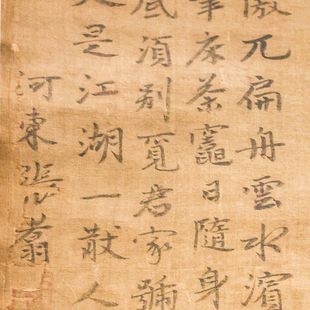 傲兀扁舟雲水濱
筆床茶竈日隨身
底須别覓君家號
是江湖一散人
河東張翥